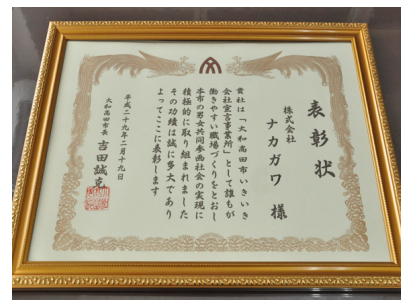 表彰状
株式会社
ナカガワ 様
貴社は「大和高田市いきいき
会社宣言事業所」として誰もが
働きやすい職場づくりをとおし
本市の男女共同参画社会の実現に
積極的に取り組まれました
その功績は誠に多大であり
よってここに表彰します
平成二十九年二月十九日
大和高田市長 吉田誠克